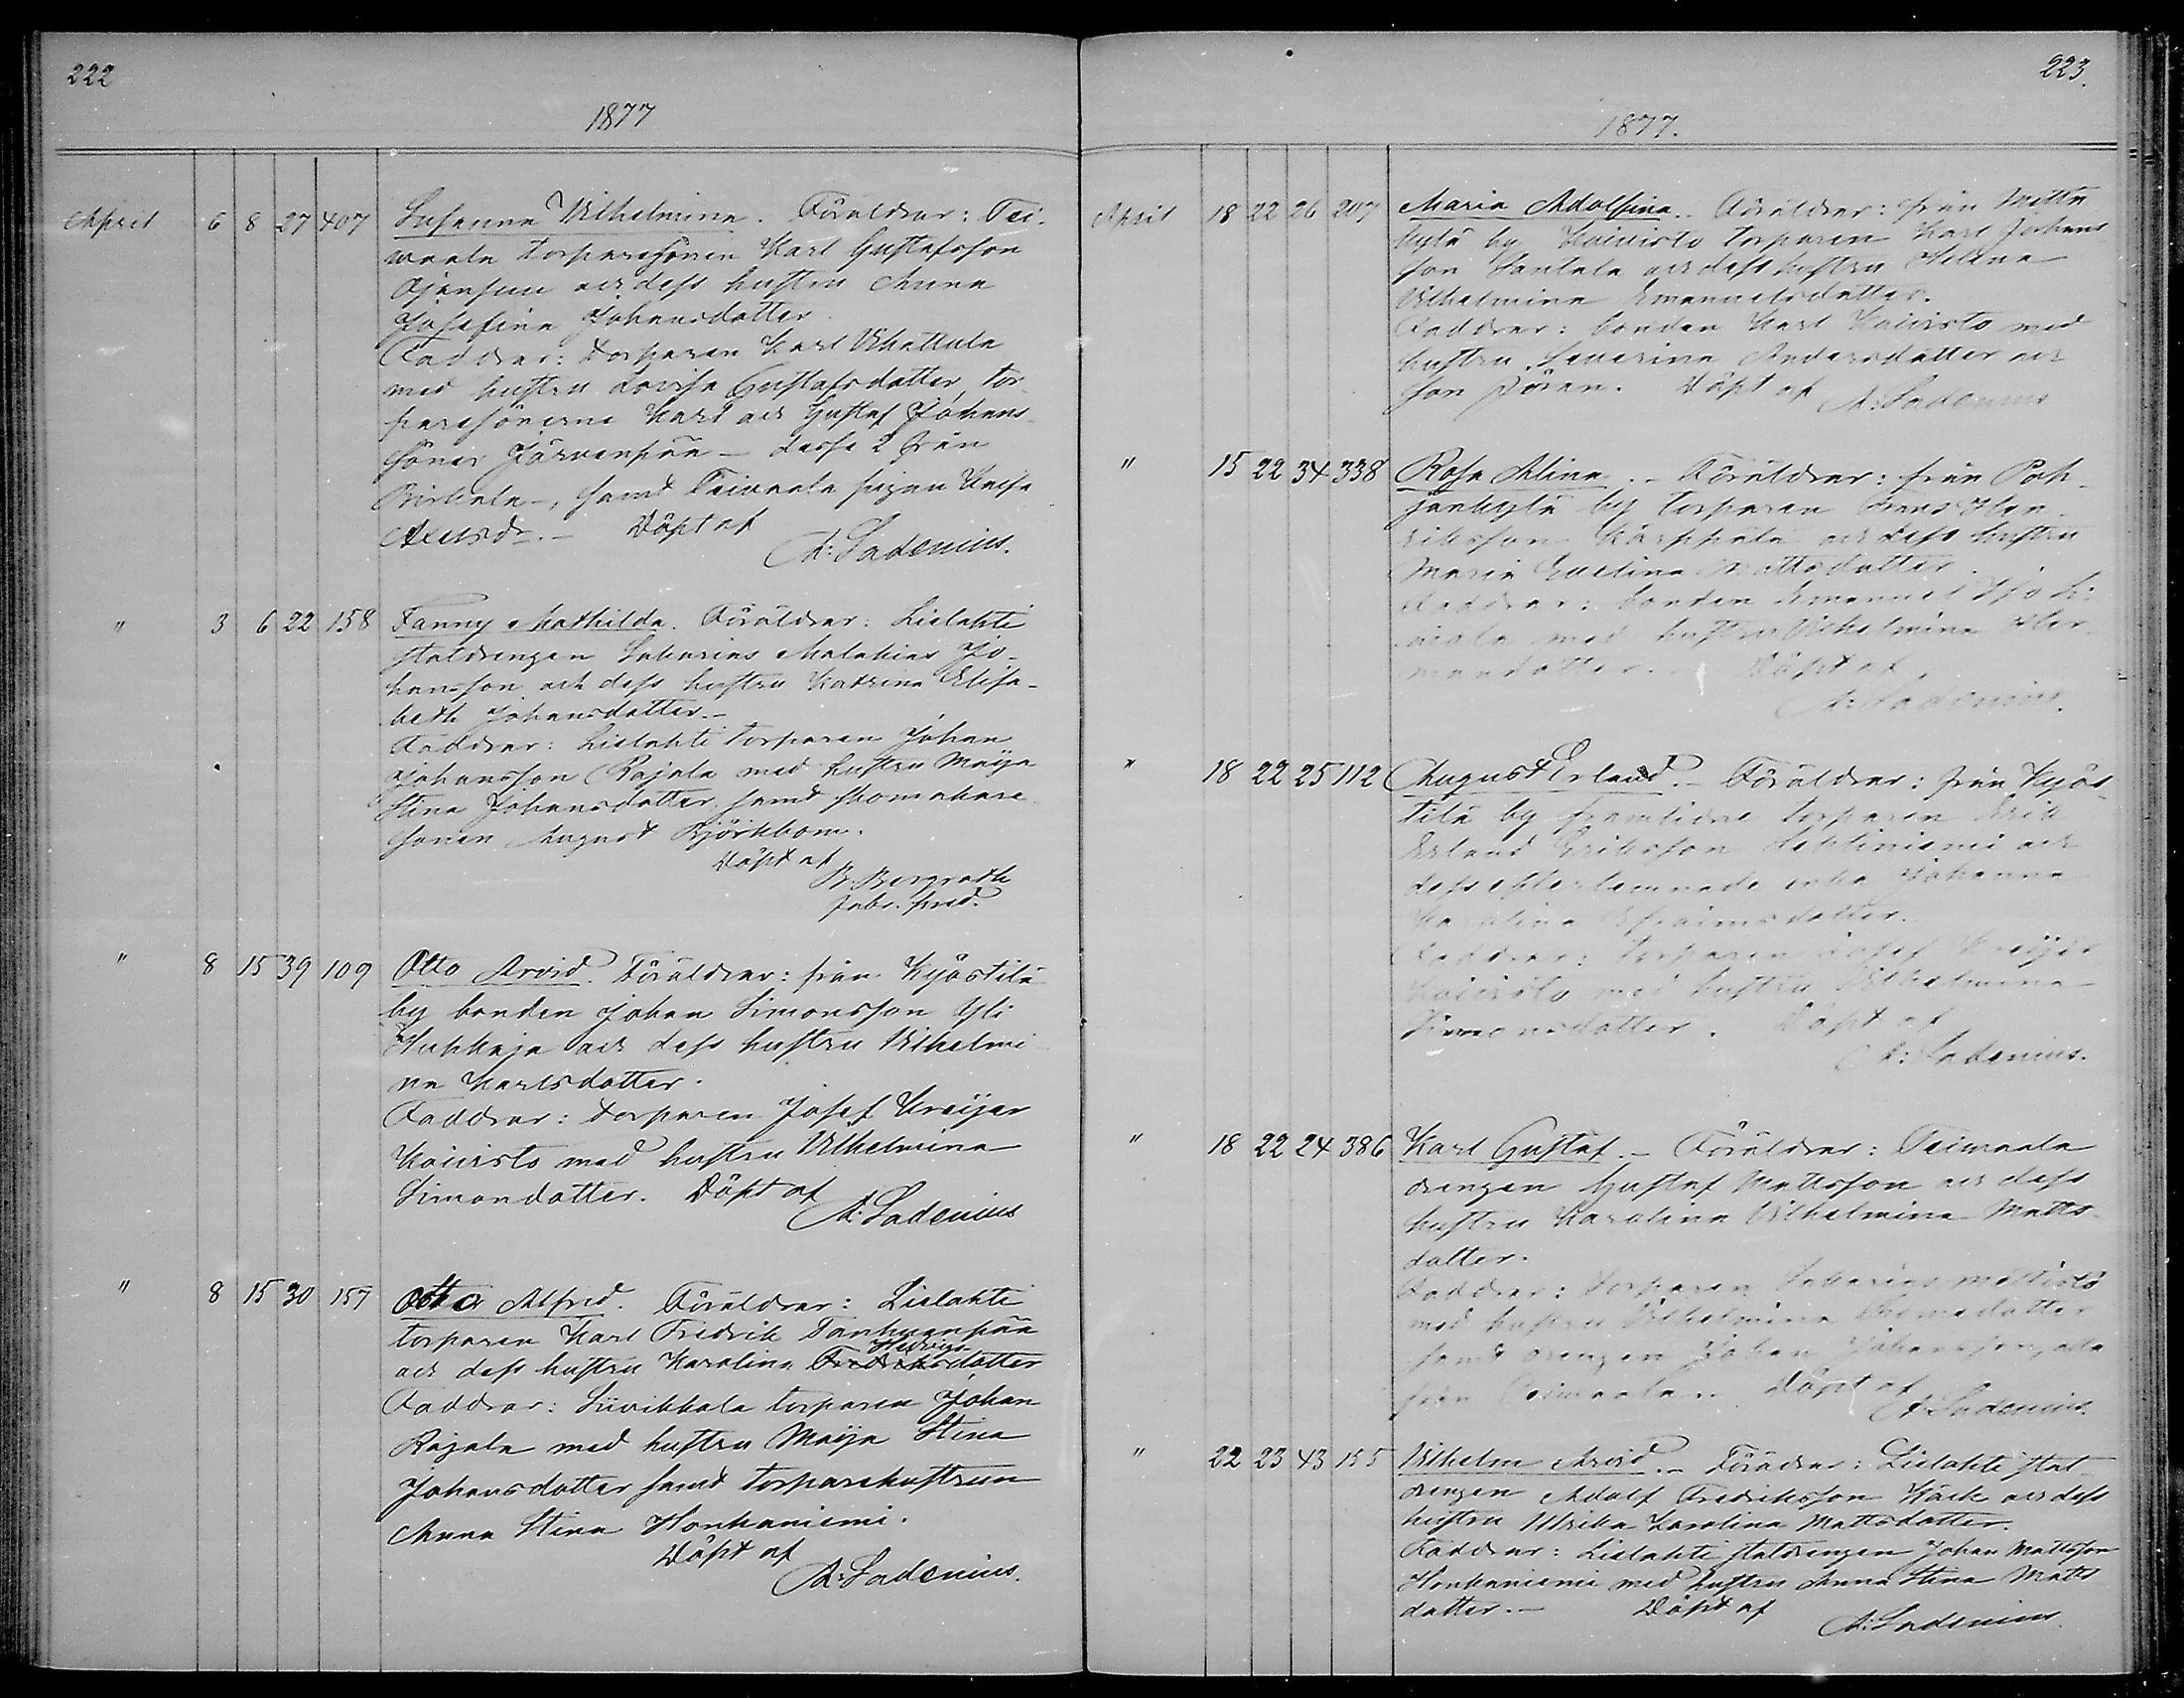 222
1877
April 6 8 27 407 Susanna Vilhelmina. Föräldrar: Tei-
waala torparesonen Karl Gustafsson
Ojansuu och dess hustru Anna
Josefina Johansdotter
Faddrar: Torparen Karl Uhattula
med hustru Lovisa Gustafsdotter, tor-
paresönerna Karl och Gustaf Johans
söner Järvenpää - dessa 2 från
- , samt Teivaala pigan
Döpt af
A: Ladenius.
" 3 6 22 158 Fanny Mathilda. Föräldrar: Lielahti
statdrengen Sakarias Malakias Jo-
hansson och dess hustru Katrina Elisa-
beth Johansdotter.-
Faddrar: Lielahti torparen Johan
Johansson Rajala med hustru Maija
Stina Johansdotter samt skomakare
sonen August Björkbom.
Döpt af
B. Bergroth
" 8 15 39 109 Otto Arvid. Föräldrar: från Kyöstilä
by bonden Johan Simonsson Yli
Huhkaja och dess hustru Vilhelmi
na Karlsdotter.
Faddrar: Torparen Josef Kreijar
Koivisto med hustru Vilhelmina
Simondotter. Döpt af
A: Ladenius
" 8 15 30 157 Otto Alfred. Föräldrar: Lielahti
torparen Karl Fredrik Tanhuanpää
och dess hustru Karolina Fredriksdotter
Faddrar: Siivikkala torparen Johan
Rajala med hustru Maija Stina
Johansdotter samt torparehustrun
Anna Stina Honkaniemi.
Döpt af
A: Ladenius.
223.
1877.
April 18 22 26 207 Maria Adolfina.. Föräldrar: från
kylä by Koivisto torparen Karl Johans
son Santala och dess hustru Helena
Vilhelmina Emanuelsdotter.
Faddrar: bonden Karl Koivisto med
hustru Severina Andersdotter och
son Sören. Döpt af A: Ladenius
" 15 22 34 338 Rosa Alina.- Föräldrar: från Poh-
jankylä by torparen Frans Hen-
riksson Kärppälä och dess hustru
Maria Evelina Mattsdotter.
Faddrar: bonden Emanuel
med hustru Vilhelmina Her-
mansdotter. Döpt af
A: Ladenius.
" 18 22 25 112 August Erland.- Föräldrar: från Kyös-
tilä by framlidne torparen Erik
Erland Eriksson Lehtiniemi och
dess efterlemnade enka Johanna
Karolina Efraimsdotter.
Faddrar: torparen Josef Kreijar
Koivisto med hustru Vilhelmina
Simonsdotter. Döpt af
A: Ladenius.
" 18 22 24 386 Karl Gustaf.- Föräldrar: Teivaala
drengen Gustaf Mattsson och dess
hustru Karolina Vilhelmina Matts-
dotter.
Faddrar: torparen Sakarias Mattistö
med hustru Vilhelmina Thomasdotter
samt drengen Johan Johansson, alla
från Teivaala.. Döpt af
A: Ladenius.
" 22 23 43 155 Vilhelm Arvid.- Förädrar: Lielahti stat-
drengen Adolf Fredriksson Käck och dess
hustru Ulrika Karolina Mattsdotter.
Faddrar: Lielahti statdrengen Johan Mattsson
Honkaniemi med hustru Anna Stina Matts
dotter.- Döpt af A: Ladenius.